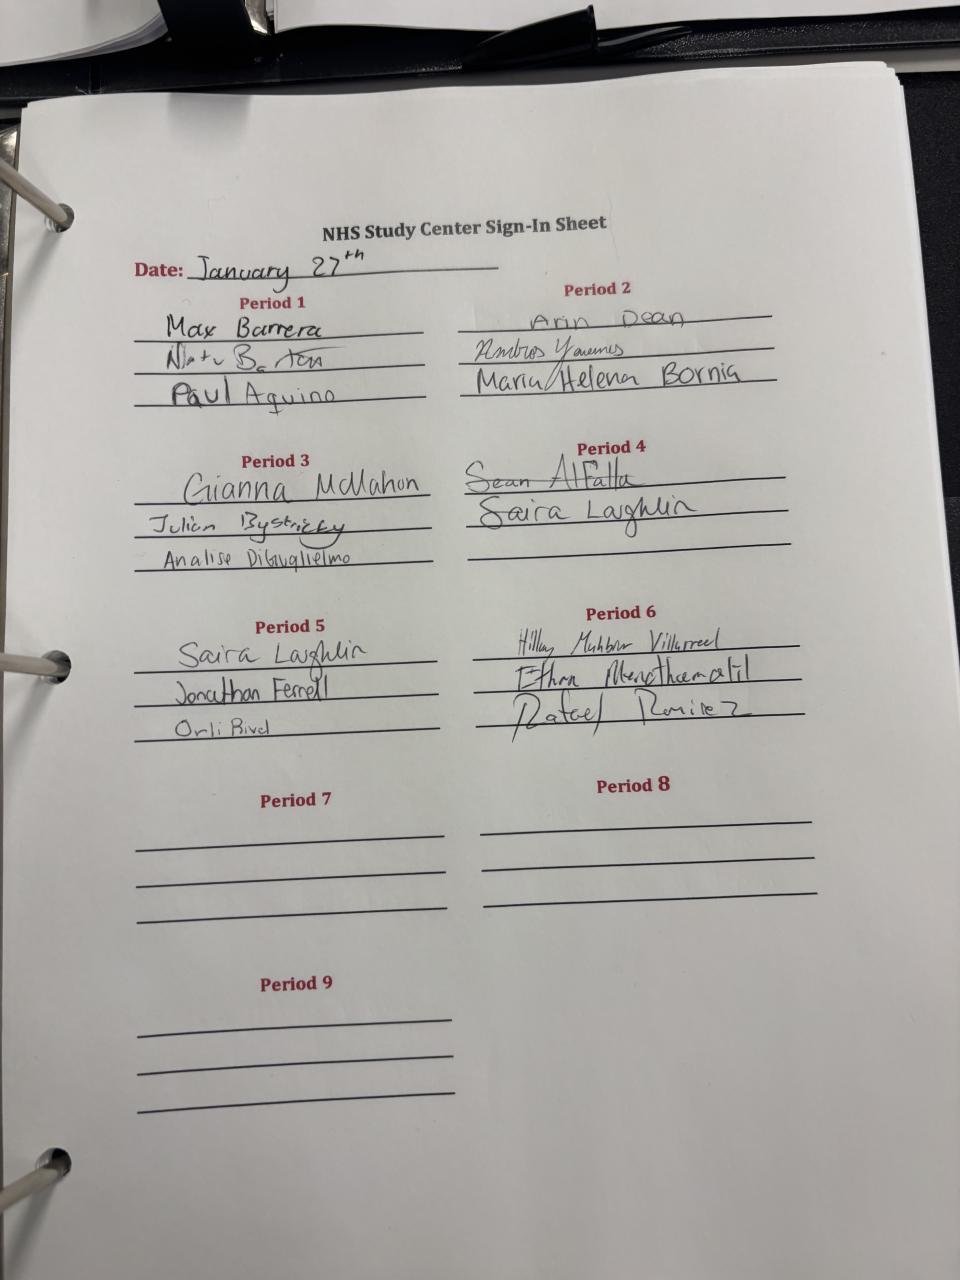 NHS Study Center Sign-In Sheet
Date: January 27th
Period 1
Max Barrera
Paul Aquino
Period 2
Arin Dean
Maria Helena Bornia
Period 3
Gianna McMahon
Julian Bystricky
Analise DiGuglielmo
Period 4
Sean AlFatta
Saira Laughlin
Period 5
Saira Laughlin
Jonathan Ferrell
Orli
Period 6
Villarreal
Ethan
Rafael Ramirez
Period 7
Period 8
Period 9